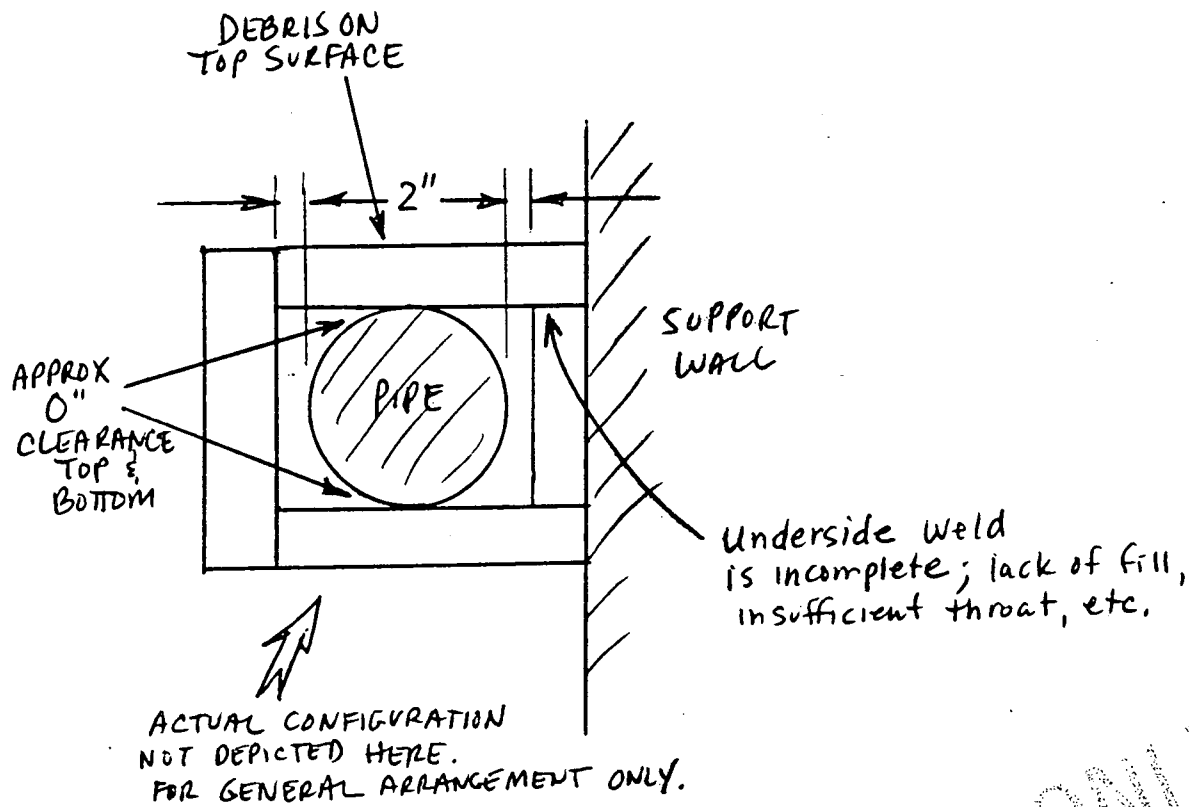 DEBRIS ON
TOP SURFACE
2"
APPROX
0"
CLEARANCE
TOP &
BOTTOM
PIPE
SUPPORT
WALL
Underside weld
is incomplete; lack of fill,
insufficient throat, etc.
ACTUAL CONFIGURATION
NOT DEPICTED HERE.
FOR GENERAL ARRANGEMENT ONLY.